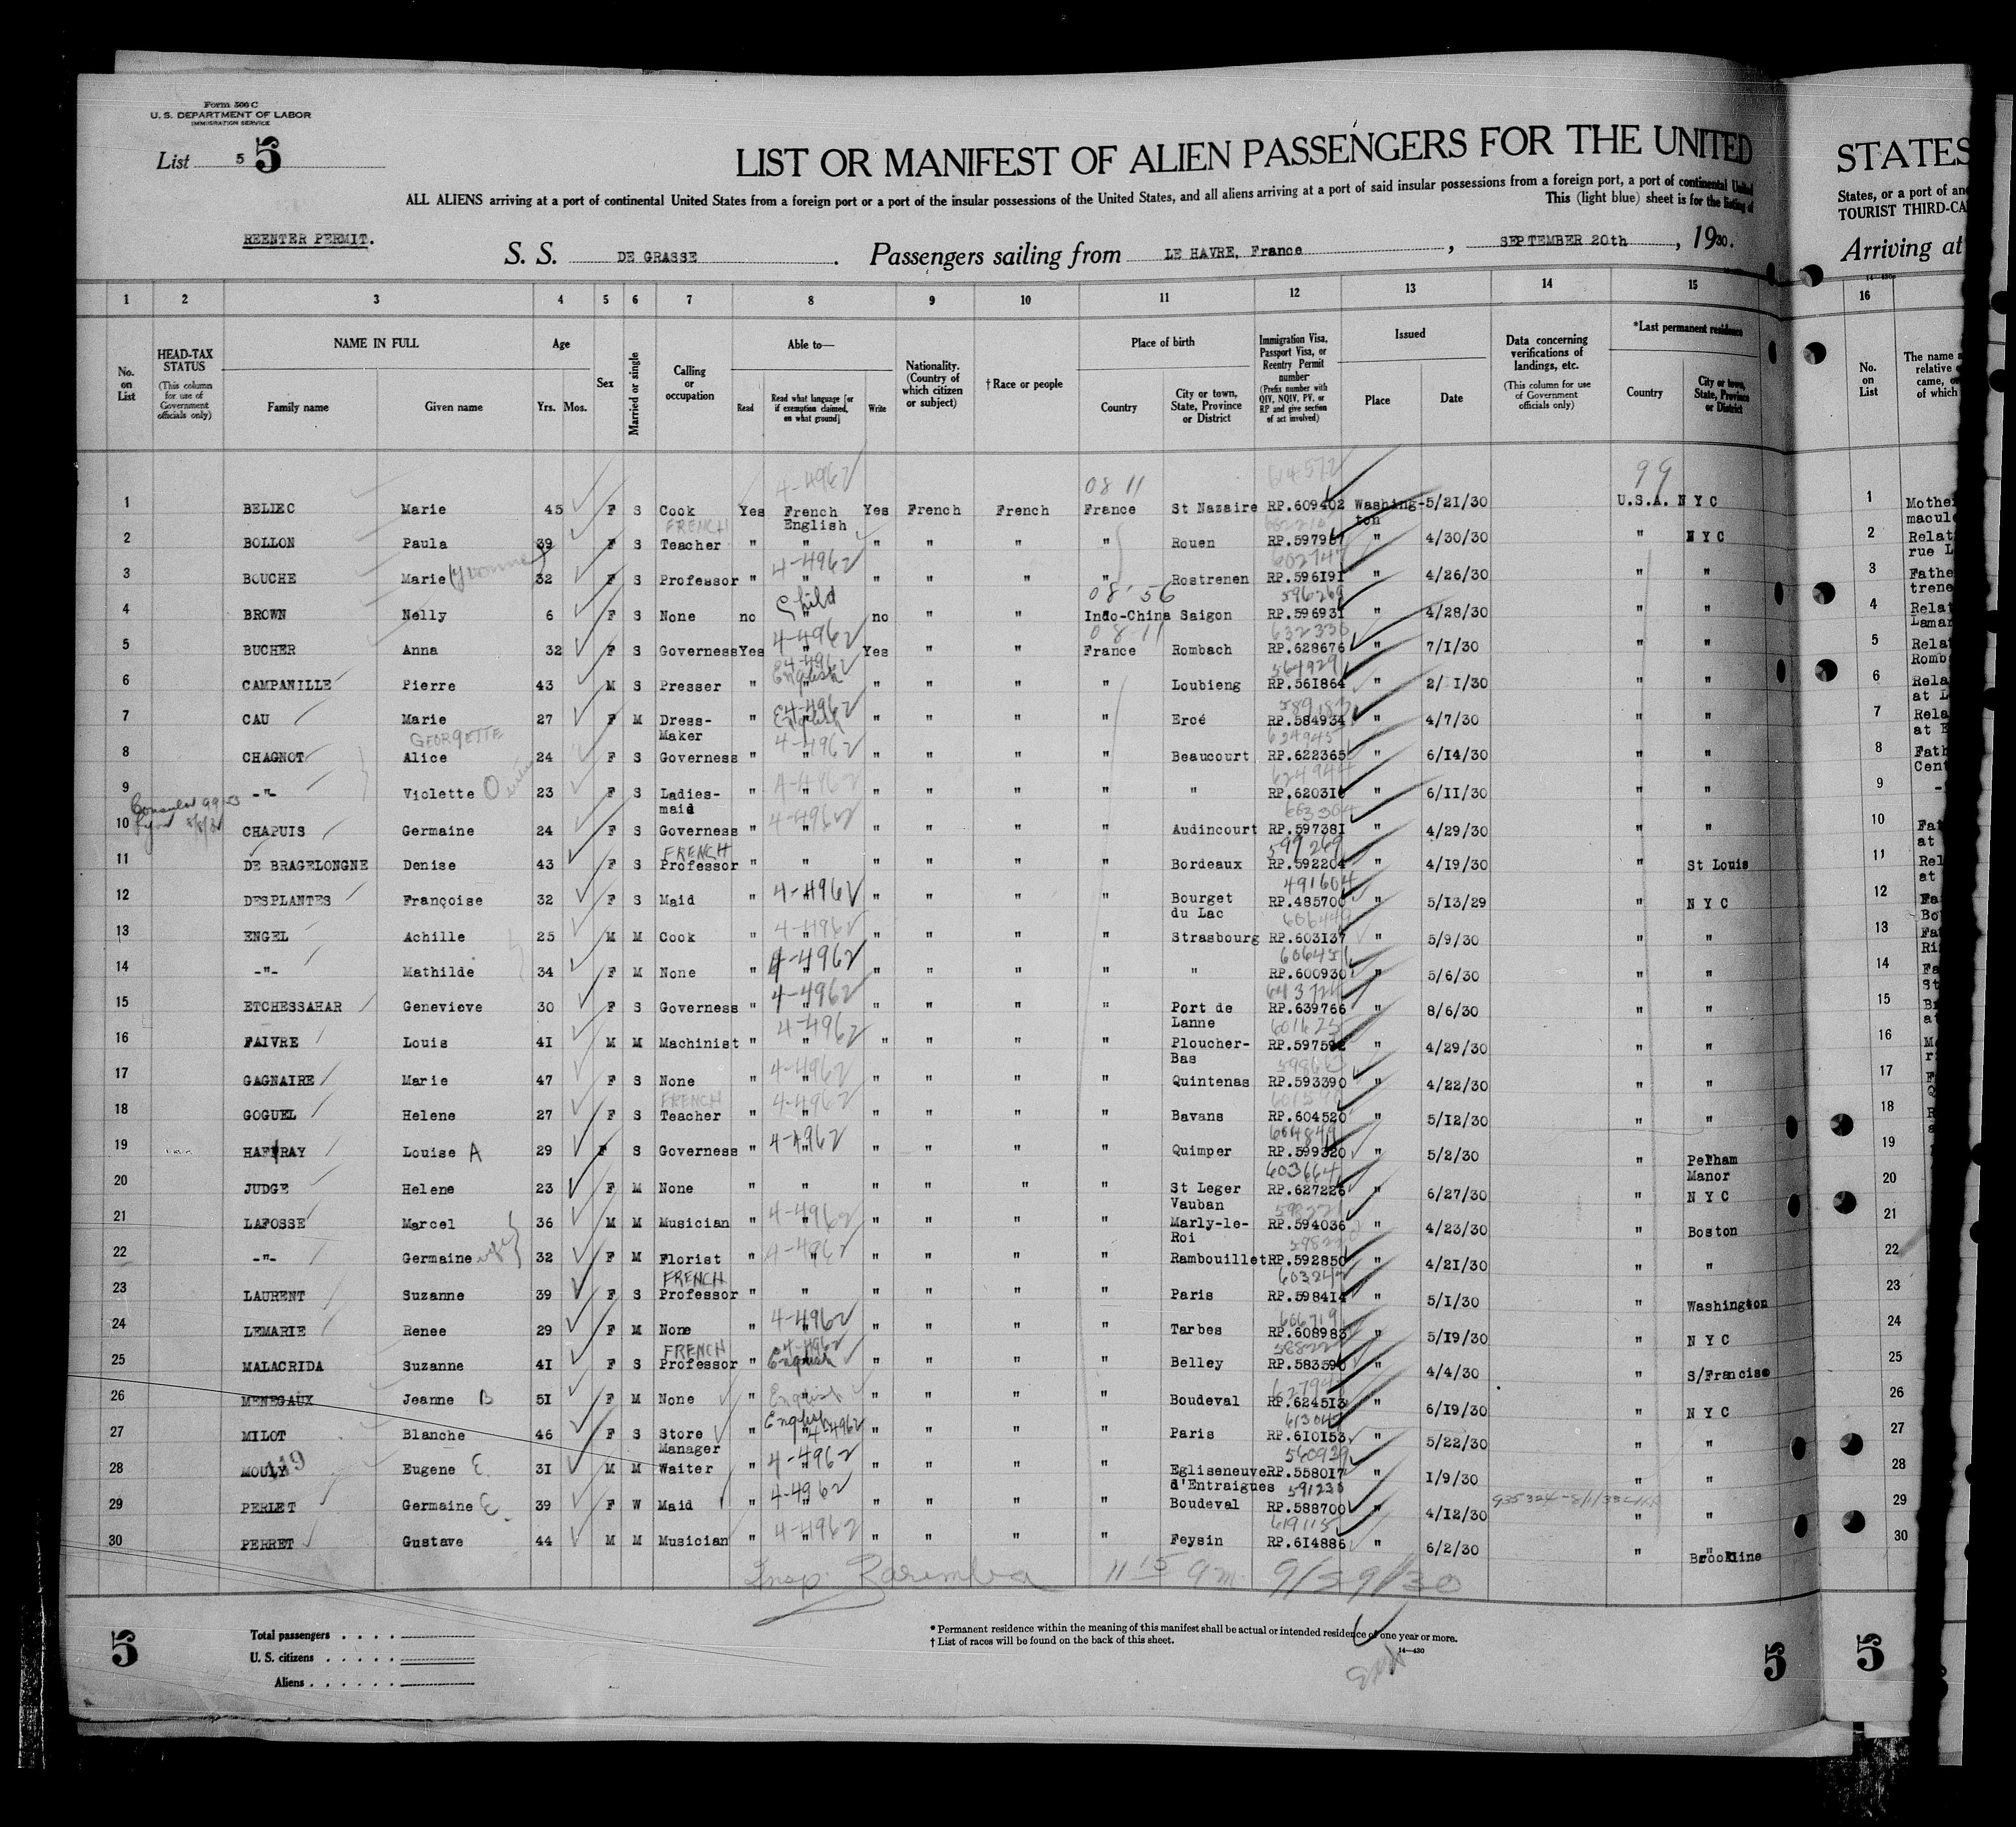 Form 500 C
U. S. DEPARTMENT OF LABOR
IMMIGRATION SERVICE
List 5 5
LIST OR MANIFEST OF ALIEN PASSENGERS FOR THE UNITED
STATES
ALL ALIENS arriving at a port of continental United States from a foreign port or a port of the insular possessions of the United States, and all aliens arriving at a port of said insular possessions from a foreign port, a port of continental United
This (light blue) sheet is for the listing of
States, or a port of an
TOURIST THIRD-CA
REENTER PERMIT.
S. S. DE GRASSE . Passengers sailing from LE HAVRE, France , SEPTEMBER 20th , 1930.
Arriving at
1 2 3 4 5 6 7 8 9 10 11 12 13 14 15 16
No. on List
HEAD-TAX STATUS (This column for use of Government officials only)
NAME IN FULL Family name Given name
Age Yrs. Mos.
Sex
Married or single
Calling or occupation
Able to— Read Read what language [or if exemption claimed, on what ground] Write
Nationality. (Country of which citizen or subject)
† Race or people
Place of birth Country City or town, State, Province or District
Immigration Visa, Passport Visa, or Reentry Permit number (Prefix number with QIV, NQIV, PV, or RP and give section of act involved)
Issued Place Date
Data concerning verifications of landings, etc. (This column for use of Government officials only)
*Last permanent residence Country City or town, State, Province or District
No. on List
1 BELIEC Marie 45 F S Cook Yes French English Yes French French France St Nazaire RP.609402 Washington 5/21/30 U.S.A. N Y C
2 BOLLON Paula 39 F S FRENCH Teacher " " " " " " Rouen RP.597967 " 4/30/30 " N Y C
3 BOUCHE Marie (Yvonne) 32 F S Professor " 4-4962 " " " " " Rostrenen RP.596191 " 4/26/30 " "
4 BROWN Nelly 6 F S None no Child " no " " Indo-China Saigon RP.596931 " 4/28/30 " "
5 BUCHER Anna 32 F S Governess Yes 4-4962 " Yes " " France Rombach RP.628676 " 7/1/30 " "
6 CAMPANILLE Pierre 43 M S Presser " English 4-4962 " " " " Loubieng RP.561864 " 2/ 1/30 " "
7 CAU Marie 27 F M Dress-Maker " English 4-4962 " " " " Ercé RP.584934 " 4/7/30 " "
8 CHAGNOT GEORGETTE Alice 24 F S Governess " 4-4962 " " " " " Beaucourt RP.622365 " 6/14/30 " "
9 -"- Violette 23 F S Ladies-maid " 4-4962 " " " " " " RP.620316 " 6/11/30 " "
10 CHAPUIS Germaine 24 F S Governess " 4-4962 " " " " " Audincourt RP.597381 " 4/29/30 " "
11 DE BRAGELONGNE Denise 43 F S FRENCH Professor " " " " " " Bordeaux RP.592204 " 4/19/30 " St Louis
12 DESPLANTES Françoise 32 F S Maid " 4-4962 " " " " Bourget du Lac RP.485700 " 5/13/29 " N Y C
13 ENGEL Achille 25 M M Cook " 4-4962 " " " " " Strasbourg RP.603137 " 5/9/30 " "
14 -"- Mathilde 34 F M None " 4-4962 " " " " " " RP.600930 " 5/6/30 " "
15 ETCHESSAHAR Genevieve 30 F S Governess " 4-4962 " " " " " Port de Lanne RP.639766 " 8/6/30 " "
16 FAIVRE Louis 41 M M Machinist " 4-4962 " " " " " Ploucher-Bas RP.597592 " 4/29/30 " "
17 GAGNAIRE Marie 47 F S None " 4-4962 " " " " " Quintenas RP.593390 " 4/22/30 " "
18 GOGUEL Helene 27 F S FRENCH Teacher " 4-4962 " " " " " Bavans RP.604520 " 5/12/30 " "
19 HAFFRAY Louise A 29 F S Governess " 4-4962 " " " " " Quimper RP.599320 " 5/2/30 " Pelham Manor
20 JUDGE Helene 23 F M None " " " " " " St Leger Vauban RP.627226 " 6/27/30 " N Y C
21 LAFOSSE Marcel 36 M M Musician " 4-4962 " " " " " Marly-le-Roi RP.594036 " 4/23/30 " Boston
22 -"- Germaine wife 32 F M Florist " 4-4962 " " " " " Rambouillet RP.592850 " 4/21/30 " "
23 LAURENT Suzanne 39 F S FRENCH Professor " " " " " " Paris RP.598414 " 5/1/30 " Washington
24 LEMARIE Renee 29 F M None " 4-4962 " " " " " Tarbes RP.608983 " 5/19/30 " N Y C
25 MALACRIDA Suzanne 41 F S FRENCH Professor " English 4-4962 " " " " Belley RP.583590 " 4/4/30 " S/Francisc
26 MENEGAUX Jeanne B 51 F M None " English " " " " Boudeval RP.624513 " 6/19/30 " N Y C
27 MILOT Blanche 46 F S Store Manager " English 4-4962 " " " " Paris RP.610153 " 5/22/30 " "
28 MOULY 119 Eugene E. 31 M M Waiter " 4-4962 " " " " " Egliseneuve d'Entraigues RP.558017 " 1/9/30 " "
29 PERLET Germaine E. 39 F W Maid " 4-4962 " " " " " Boudeval RP.588700 " 4/12/30 " "
30 PERRET Gustave 44 M M Musician " 4-4962 " " " " " Feysin RP.614886 " 6/2/30 " Brookline
Insp. Zaremba 11 15 am 9/29/30
5
Total passengers . . . .
U. S. citizens . . . . .
Aliens . . . . . .
* Permanent residence within the meaning of this manifest shall be actual or intended residence of one year or more.
† List of races will be found on the back of this sheet.
14—430
5
5